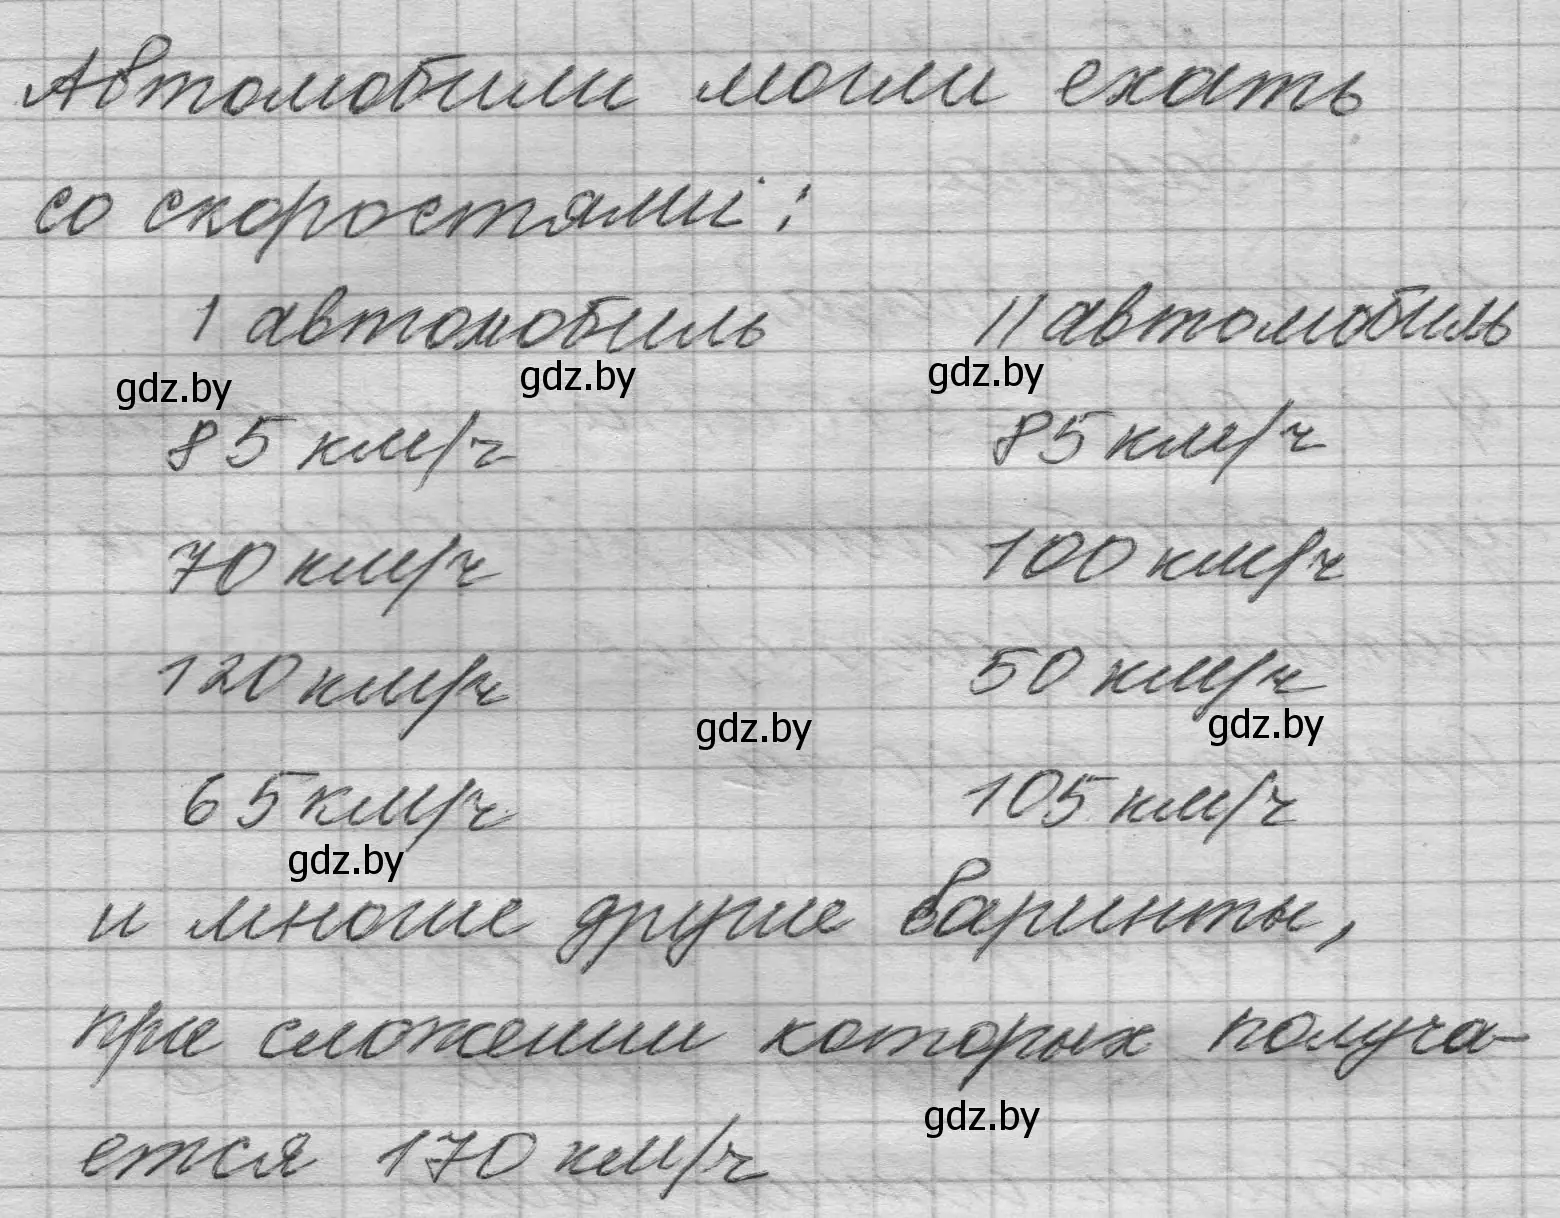 Автомобили могли ехать
со скоростями:
I автомобиль II автомобиль
gdz.by gdz.by gdz.by
85 км/ч 85 км/ч
70 км/ч 100 км/ч
120 км/ч 50 км/ч
gdz.by gdz.by
65 км/ч 105 км/ч
gdz.by
и многие другие варинты,
при сложении которых получа-
gdz.by
ется 170 км/ч